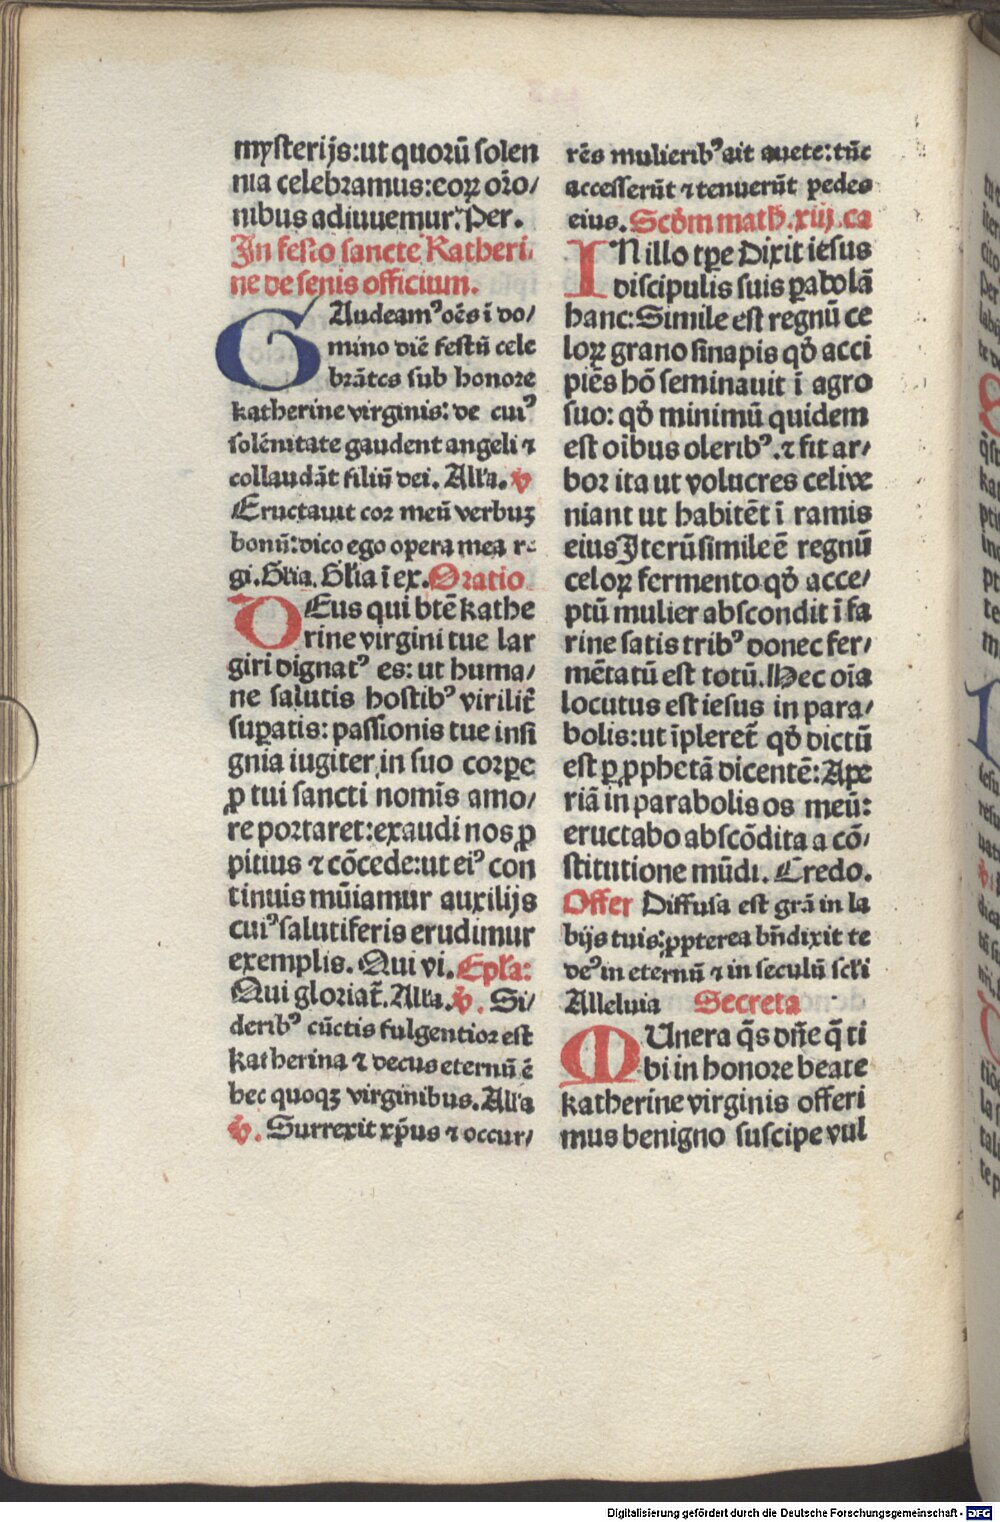 mysterijs:ut quorū solen
nia celebramus:eoꝝ oꝛ̄o/
nibus adiuuemur. Per.
In festo sancte Katheri-
ne de senis officium.
GAudeamꝰ oēs ī do/
mino diē festū cele
brātes sub honore
katherine virginis: de cuiꝰ
solēnitate gaudent angeli ⁊
collaudāt filiū dei. All'a. v
Eructauit cor meū verbuꝫ
bonū:dico ego opera mea re
gi. Gl'ia. Gl'ia ī ex. Oratio
DEus qui btē kathe
rine virgini tue lar
giri dignatꝰ es: ut huma/
ne salutis hostibꝰ virilit̄
suꝑatis: passionis tue insi
gnia iugiter in suo corpe
ꝓ tui sancti nomīs amo/
re portaret:exaudi nos ꝓ
pitius ⁊ cōcede:ut eiꝰ con
tinuis mūiamur auxilijs
cuiꝰ salutiferis erudimur
exemplis. Qui vi. Epl'a:
Qui gloriat̄. All'a. v. Si/
deribꝰ cūctis fulgentior est
katherina ⁊ decus eternū ē
hec quoqꝫ virginibus. All'a
v. Surrexit xp̄us ⁊ occur/
rēs mulieribꝰ ait auete: tūc
accesserūt ⁊ tenuerūt pedes
eius. Scd̄m math. xiij. ca
IN illo tꝑe Dixit iesus
discipulis suis ꝑabolā
hanc: Simile est regnū ce
loꝝ grano sinapis qd̄ acci
piēs hō seminauit ī agro
suo: qd̄ minimū quidem
est oībus oleribꝰ. ⁊ fit ar/
bor ita ut volucres celi ve
niant ut habitēt ī ramis
eius Iterū simile ē regnū
celoꝝ fermento qd̄ acce/
ptū mulier abscondit ī fa
rine satis tribꝰ donec fer/
mētatū est totū. Hec oīa
locutus est iesus in para/
bolis:ut īpleret̄ qd̄ dictū
est ꝑ ꝓphetā dicentē: Ape
riā in parabolis os meū:
eructabo abscōdita a cō/
stitutione mūdi. Credo.
Offer Diffusa est grā in la
bijs tuis: ꝓpterea bn̄dixit te
deꝰ in eternū ⁊ in seculū scl'i
Alleluia Secreta
MUnera q̄s dn̄e q̄ ti
bi in honore beate
katherine virginis offeri
mus benigno suscipe vul
Digitalisierung gefördert durch die Deutsche Forschungsgemeinschaft - DFG